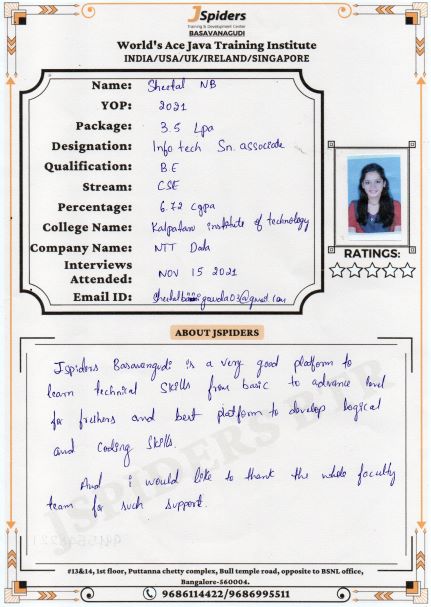 JSpiders
Training & Development Center
BASAVANAGUDI
World's Ace Java Training Institute
INDIA/USA/UK/IRELAND/SINGAPORE
Name: Sheetal NB
YOP: 2021
Package: 3.5 Lpa
Designation: Info tech Sn. associate
Qualification: B.E
Stream: CSE
Percentage: 6.72 cgpa
College Name: Kalpataru institute of technology
Company Name: NTT Data
Interviews
Attended: NOV 15 2021
Email ID:
RATINGS:
ABOUT JSPIDERS
Jspiders Basavangudi is a very good platform to
learn technical skills from basic to advance level
for freshers and best platform to develop logical
and coding skills.
And i would like to thank the whole faculty
team for such support.
JSPIDERS BTR
#13&14, 1st floor, Puttanna chetty complex, Bull temple road, opposite to BSNL office,
Bangalore-560004.
9686114422/9686995511